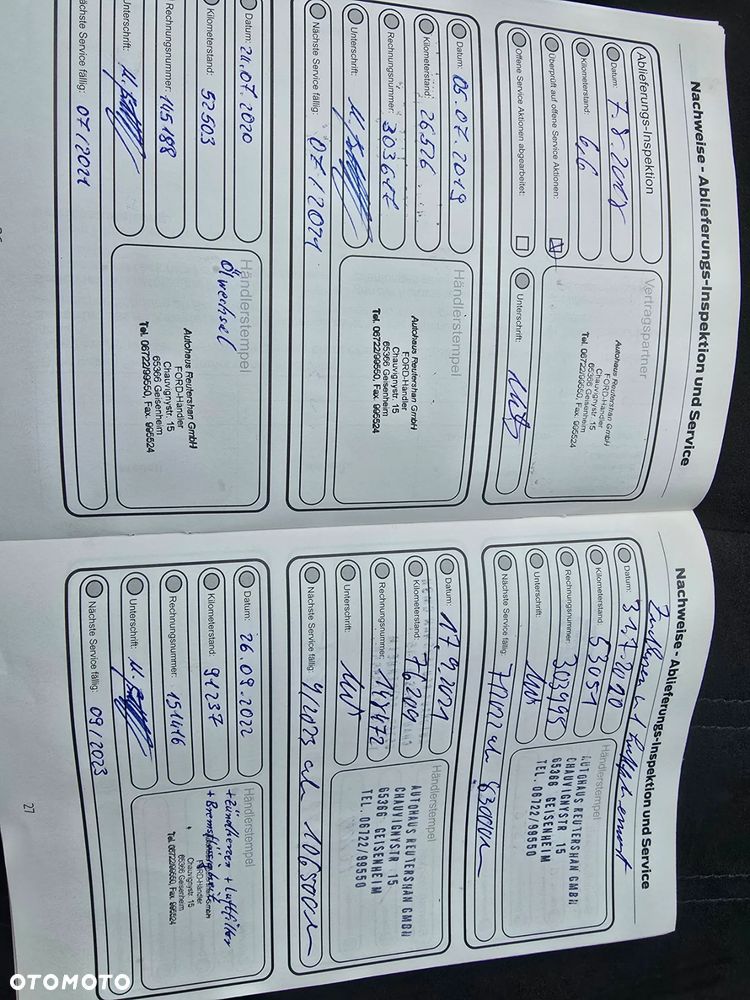 Nachweise - Ablieferungs-Inspektion und Service
Ablieferungs-Inspektion
Datum: 7.8.2018
Kilometerstand: 66
Überprüft auf offene Service Aktionen:
Offene Service Aktionen abgearbeitet:
Vertragspartner
Autohaus Reutershan GmbH
FORD-Händler
Chauvignystr. 15
65366 Geisenheim
Tel. 06722/99550, Fax. 995524
Unterschrift:
Datum: 05.07.2019
Kilometerstand: 26526
Rechnungsnummer: 303647
Unterschrift:
Nächste Service fällig: 07/2021
Händlerstempel
Autohaus Reutershan GmbH
FORD-Händler
Chauvignystr. 15
65366 Geisenheim
Tel. 06722/99550, Fax. 995524
Datum: 24.07.2020
Kilometerstand: 52503
Rechnungsnummer: 145188
Unterschrift:
Nächste Service fällig: 07/2021
Händlerstempel
Ölwechsel
Autohaus Reutershan GmbH
FORD-Händler
Chauvignystr. 15
65366 Geisenheim
Tel. 06722/99550, Fax. 995524
Nachweise - Ablieferungs-Inspektion und Service
Datum: 31.7.2020
Kilometerstand: 53051
Rechnungsnummer: 303995
Unterschrift:
Nächste Service fällig: 7/2022
Händlerstempel
AUTOHAUS REUTERSHAN GMBH
CHAUVIGNYSTR 15
65366 GEISENHEIM
TEL. 06722/99550
Datum: 17.9.2021
Kilometerstand: 76209
Rechnungsnummer: 148472
Unterschrift:
Nächste Service fällig: 9/2023
Händlerstempel
AUTOHAUS REUTERSHAN GMBH
CHAUVIGNYSTR 15
65366 GEISENHEIM
TEL. 06722/99550
Datum: 26.09.2022
Kilometerstand: 91237
Rechnungsnummer: 151416
Unterschrift:
Nächste Service fällig: 09/2023
Händlerstempel
+ Zündkerzen + Luftfilter
FORD-Händler
Chauvignystr. 15
65366 Geisenheim
Tel. 06722/99550, Fax. 995524
27
OTOMOTO